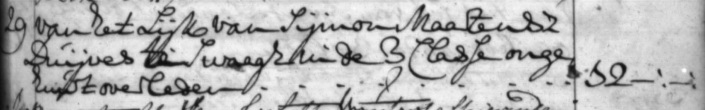 29 van het Lijk van Sijmon Maertensz
Duijves te Swaegh in de 3 Classe onge
huijt overleden . . . . . . 92 - : -